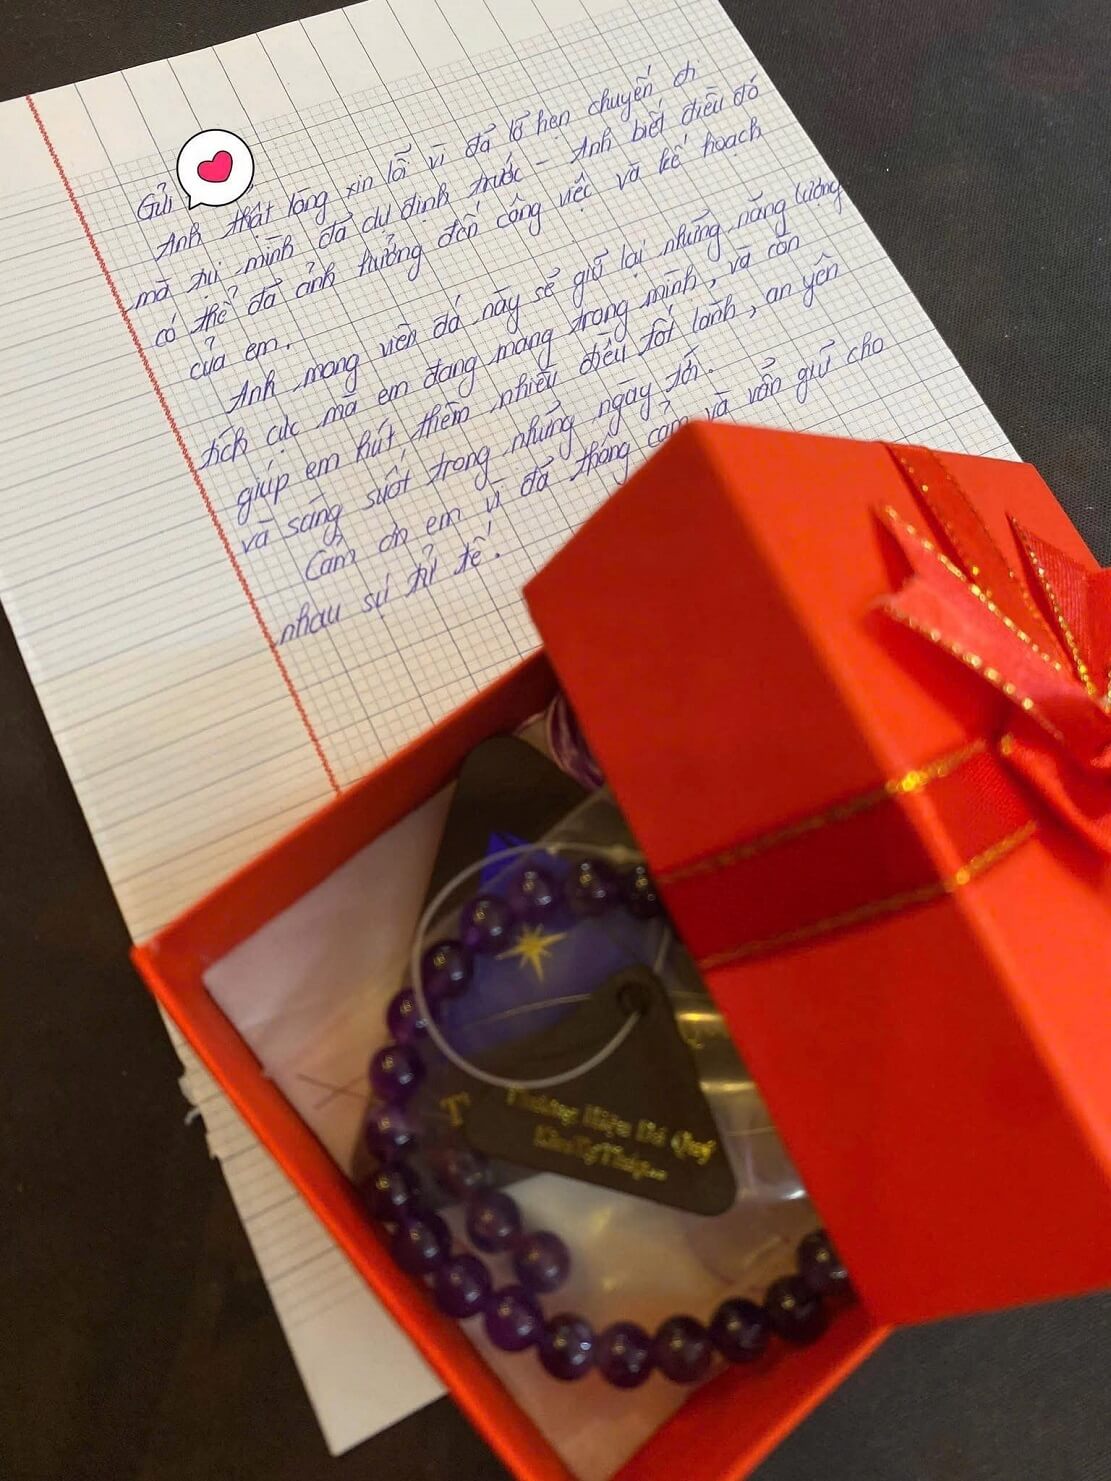 Gửi
Anh thật lòng xin lỗi vì đã lỡ hẹn chuyến đi
mà tụi mình đã dự định trước - Anh biết điều đó
có thể đã ảnh hưởng đến công việc và kế hoạch
của em.
Anh mong viên đá này sẽ giữ lại những năng lượng
tích cực mà em đang mang trong mình, và còn
giúp em hút thêm nhiều điều tốt lành, an yên
và sáng suốt trong những ngày tới.
Cảm ơn em vì đã thông cảm và vẫn giữ cho
nhau sự tử tế!
Thương Hiệu Đá Quý